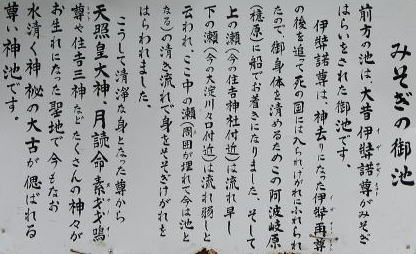 みそぎの御池
前方の池は、大昔伊弉諾尊がみそぎ
はらいをされた御池です。
伊弉諾尊は、神去りになった伊弉冉尊
の後を追って死の国には入られけがれにふれられ
たので、御身体を清めるためこの阿波岐原
(檍原)に船でお着きになりました。そして
上の瀬(今の住吉神社付近)は流れ早し
下の瀬(今の大淀川々口付近)は流れ弱しと
云われ、ここ中の瀬(周囲が埋れて今は池と
なる)の清き流れで身をそそぎけがれを
はらわれました。
こうして清浄な身となった尊から
天照皇大神、月読命、素戔鳴
尊や住吉三神などたくさんの神々が
お生れになった聖地で今もなお
水清く神秘の太古が偲ばれる
尊い神池です。